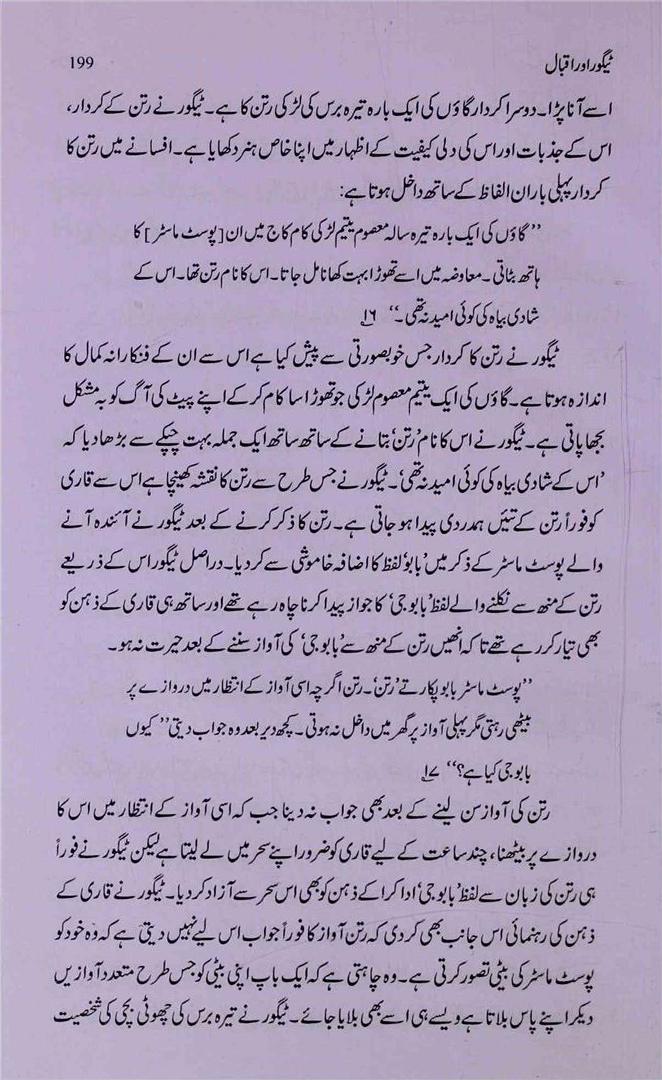 ٹیگور اور اقبال 199
اسے آنا پڑا۔ دوسرا کردار گاؤں کی ایک بارہ تیرہ برس کی لڑکی رتن کا ہے۔ ٹیگور نے رتن کے کردار،
اس کے جذبات اور اس کی دلی کیفیت کے اظہار میں اپنا خاص ہنر دکھایا ہے۔ افسانے میں رتن کا
کردار پہلی بار ان الفاظ کے ساتھ داخل ہوتا ہے:
’’گاؤں کی ایک بارہ تیرہ سالہ معصوم یتیم لڑکی کام کاج میں ان [پوسٹ ماسٹر] کا
ہاتھ بٹاتی۔ معاوضہ میں اسے تھوڑا بہت کھانا مل جاتا۔ اس کا نام رتن تھا۔ اس کے
شادی بیاہ کی کوئی امید نہ تھی۔‘‘ ۱۶
ٹیگور نے رتن کا کردار جس خوبصورتی سے پیش کیا ہے اس سے ان کے فنکارانہ کمال کا
اندازہ ہوتا ہے۔ گاؤں کی ایک یتیم معصوم لڑکی جو تھوڑا سا کام کر کے اپنے پیٹ کی آگ کو بہ مشکل
بجھا پاتی ہے۔ ٹیگور نے اس کا نام ’رتن‘ بتانے کے ساتھ ساتھ ایک جملہ بہت چپکے سے بڑھا دیا کہ
’اس کے شادی بیاہ کی کوئی امید نہ تھی‘۔ ٹیگور نے جس طرح سے رتن کا نقشہ کھینچا ہے اس سے قاری
کو فوراً رتن کے تئیں ہمدردی پیدا ہو جاتی ہے۔ رتن کا ذکر کرنے کے بعد ٹیگور نے آئندہ آنے
والے پوسٹ ماسٹر کے ذکر میں ’بابو‘ لفظ کا اضافہ خاموشی سے کر دیا۔ دراصل ٹیگور اس کے ذریعے
رتن کے منھ سے نکلنے والے لفظ ’بابو جی‘ کا جواز پیدا کرنا چاہ رہے تھے اور ساتھ ہی قاری کے ذہن کو
بھی تیار کر رہے تھے تاکہ انھیں رتن کے منھ سے ’بابو جی‘ کی آواز سننے کے بعد حیرت نہ ہو۔
’’پوسٹ ماسٹر بابو پکارتے ’رتن‘۔ رتن اگرچہ اسی آواز کے انتظار میں دروازے پر
بیٹھی رہتی مگر پہلی آواز پر گھر میں داخل نہ ہوتی۔ کچھ دیر بعد وہ جواب دیتی ’’کیوں
بابو جی کیا ہے؟‘‘ ۱۷
رتن کی آواز سن لینے کے بعد بھی جواب نہ دینا جب کہ اسی آواز کے انتظار میں اس کا
دروازے پر بیٹھنا، چند ساعت کے لیے قاری کو ضرور اپنے سحر میں لے لیتا ہے لیکن ٹیگور نے فوراً
ہی رتن کی زبان سے لفظ ’بابو جی‘ ادا کرا کے ذہن کو بھی اس سحر سے آزاد کر دیا۔ ٹیگور نے قاری کے
ذہن کی رہنمائی اس جانب بھی کر دی کہ رتن آواز کا فوراً جواب اس لیے نہیں دیتی ہے کہ وہ خود کو
پوسٹ ماسٹر کی بیٹی تصور کرتی ہے۔ وہ چاہتی ہے کہ ایک باپ اپنی بیٹی کو جس طرح متعدد آوازیں
دیکر اپنے پاس بلاتا ہے ویسے ہی اسے بھی بلایا جائے۔ ٹیگور نے تیرہ برس کی چھوٹی بچی کی شخصیت